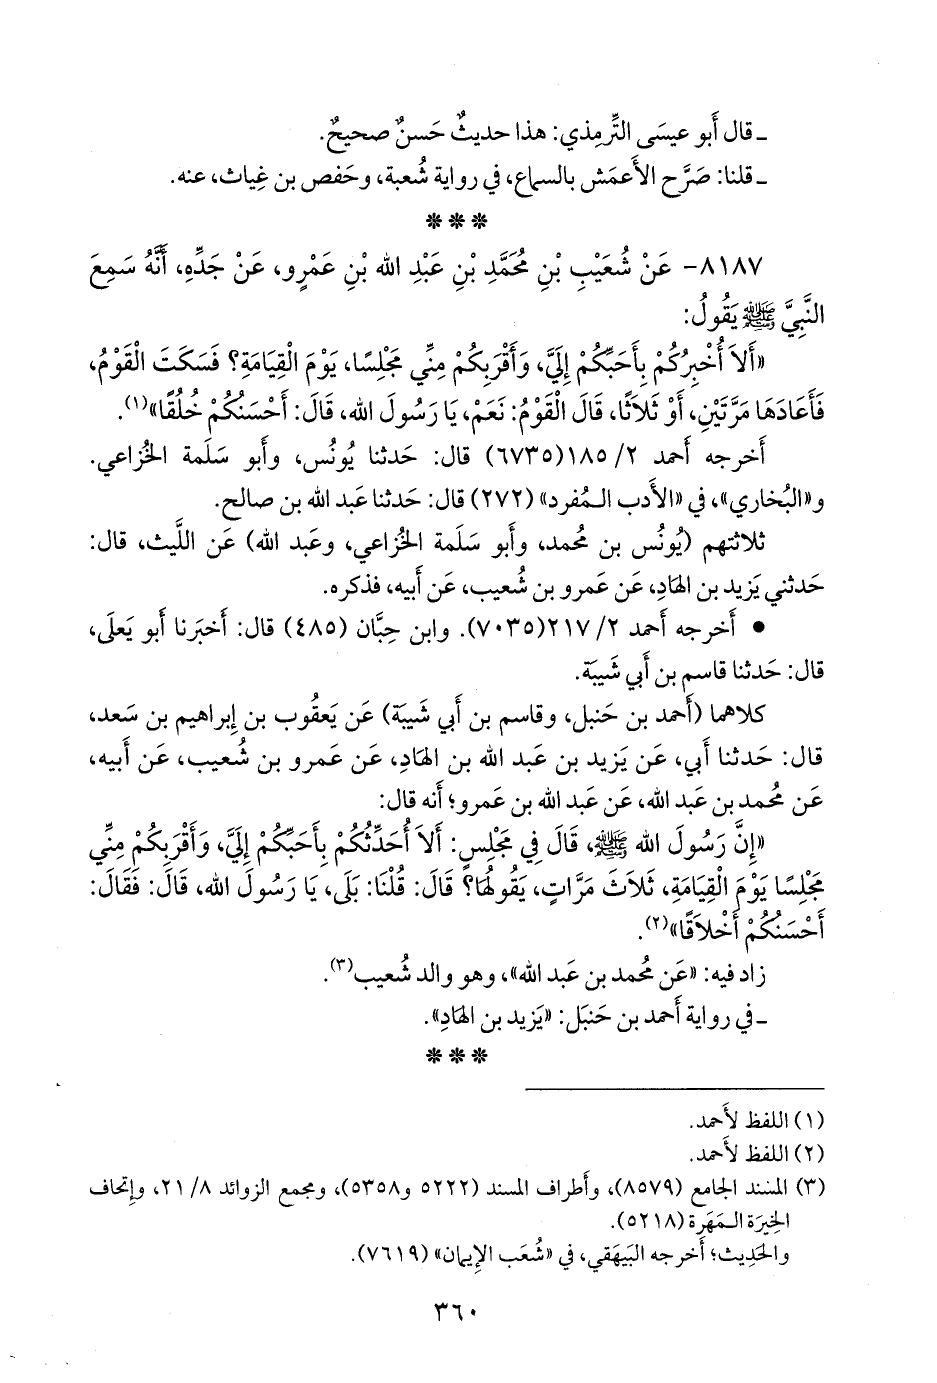 ـ قال أَبو عيسَى التِّرمِذي: هذا حديثٌ حَسنٌ صحيحٌ.
ـ قلنا: صَرَّح الأَعمَش بالسماع، في رواية شُعبة، وحَفص بن غِياث، عنه.
***
٨١٨٧- عَنْ شُعَيْبِ بْنِ مُحَمَّدِ بْنِ عَبْدِ الله بْنِ عَمْرٍو، عَنْ جَدِّهِ، أَنَّهُ سَمِعَ
النَّبِيَّ ﷺ يَقُولُ:
«أَلاَ أُخْبِرُكُمْ بِأَحَبِّكُمْ إِلَيَّ، وَأَقْرَبِكُمْ مِنِّي مَجْلِسًا، يَوْمَ الْقِيَامَةِ؟ فَسَكَتَ الْقَوْمُ،
فَأَعَادَهَا مَرَّتَيْنِ، أَوْ ثَلاَثًا، قَالَ الْقَوْمُ: نَعَمْ، يَا رَسُولَ الله، قَالَ: أَحْسَنُكُمْ خُلُقًا»(١).
أَخرجه أَحمد ٢/ ١٨٥(٦٧٣٥) قال: حَدثنا يُونُس، وأَبو سَلَمة الخُزاعي.
و«البُخاري»، في «الأَدب الـمُفرد» (٢٧٢) قال: حَدثنا عَبد الله بن صالح.
ثلاثتهم (يُونُس بن مُحمد، وأَبو سَلَمة الخُزاعي، وعَبد الله) عَن اللَّيث، قال:
حَدثني يَزيد بن الهَادِ، عَن عَمرو بن شُعيب، عَن أَبيه، فذكره.
• أَخرجه أَحمد ٢/ ٢١٧(٧٠٣٥). وابن حِبَّان (٤٨٥) قال: أَخبَرنا أَبو يَعلَى،
قال: حَدثنا قاسم بن أَبي شَيبَة.
كلاهما (أَحمد بن حَنبل، وقاسم بن أَبي شَيبَة) عَن يَعقُوب بن إِبراهيم بن سَعد،
قال: حَدثنا أَبي، عَن يَزيد بن عَبد الله بن الهَادِ، عَن عَمرو بن شُعيب، عَن أَبيه،
عَن مُحمد بن عَبد الله، عَن عَبد الله بن عَمرو؛ أَنه قال:
«إِنَّ رَسُولَ الله ﷺ، قَالَ فِي مَجْلِسٍ: أَلاَ أُحَدِّثُكُمْ بِأَحَبِّكُمْ إِلَيَّ، وَأَقْرَبِكُمْ مِنِّي
مَجْلِسًا يَوْمَ الْقِيَامَةِ، ثَلاَثَ مَرَّاتٍ، يَقُولُهَا؟ قَالَ: قُلْنَا: بَلَى، يَا رَسُولَ الله، قَالَ: فَقَالَ:
أَحْسَنُكُمْ أَخْلاَقًا»(٢).
زاد فيه: «عَن مُحمد بن عَبد الله»، وهو والد شُعيب(٣).
ـ في رواية أَحمد بن حَنبَل: «يَزيد بن الهَادِ».
***
(١) اللفظ لأَحمد.
(٢) اللفظ لأَحمد.
(٣) المسند الجامع (٨٥٧٩)، وأَطراف المسند (٥٢٢٢ و٥٣٥٨)، ومجمع الزوائد ٨/ ٢١، وإِتحاف
الخِيرَة الـمَهَرة (٥٢١٨).
والحَدِيث؛ أَخرجه البَيهَقي، في «شُعَب الإِيمان» (٧٦١٩).
٣٦٠